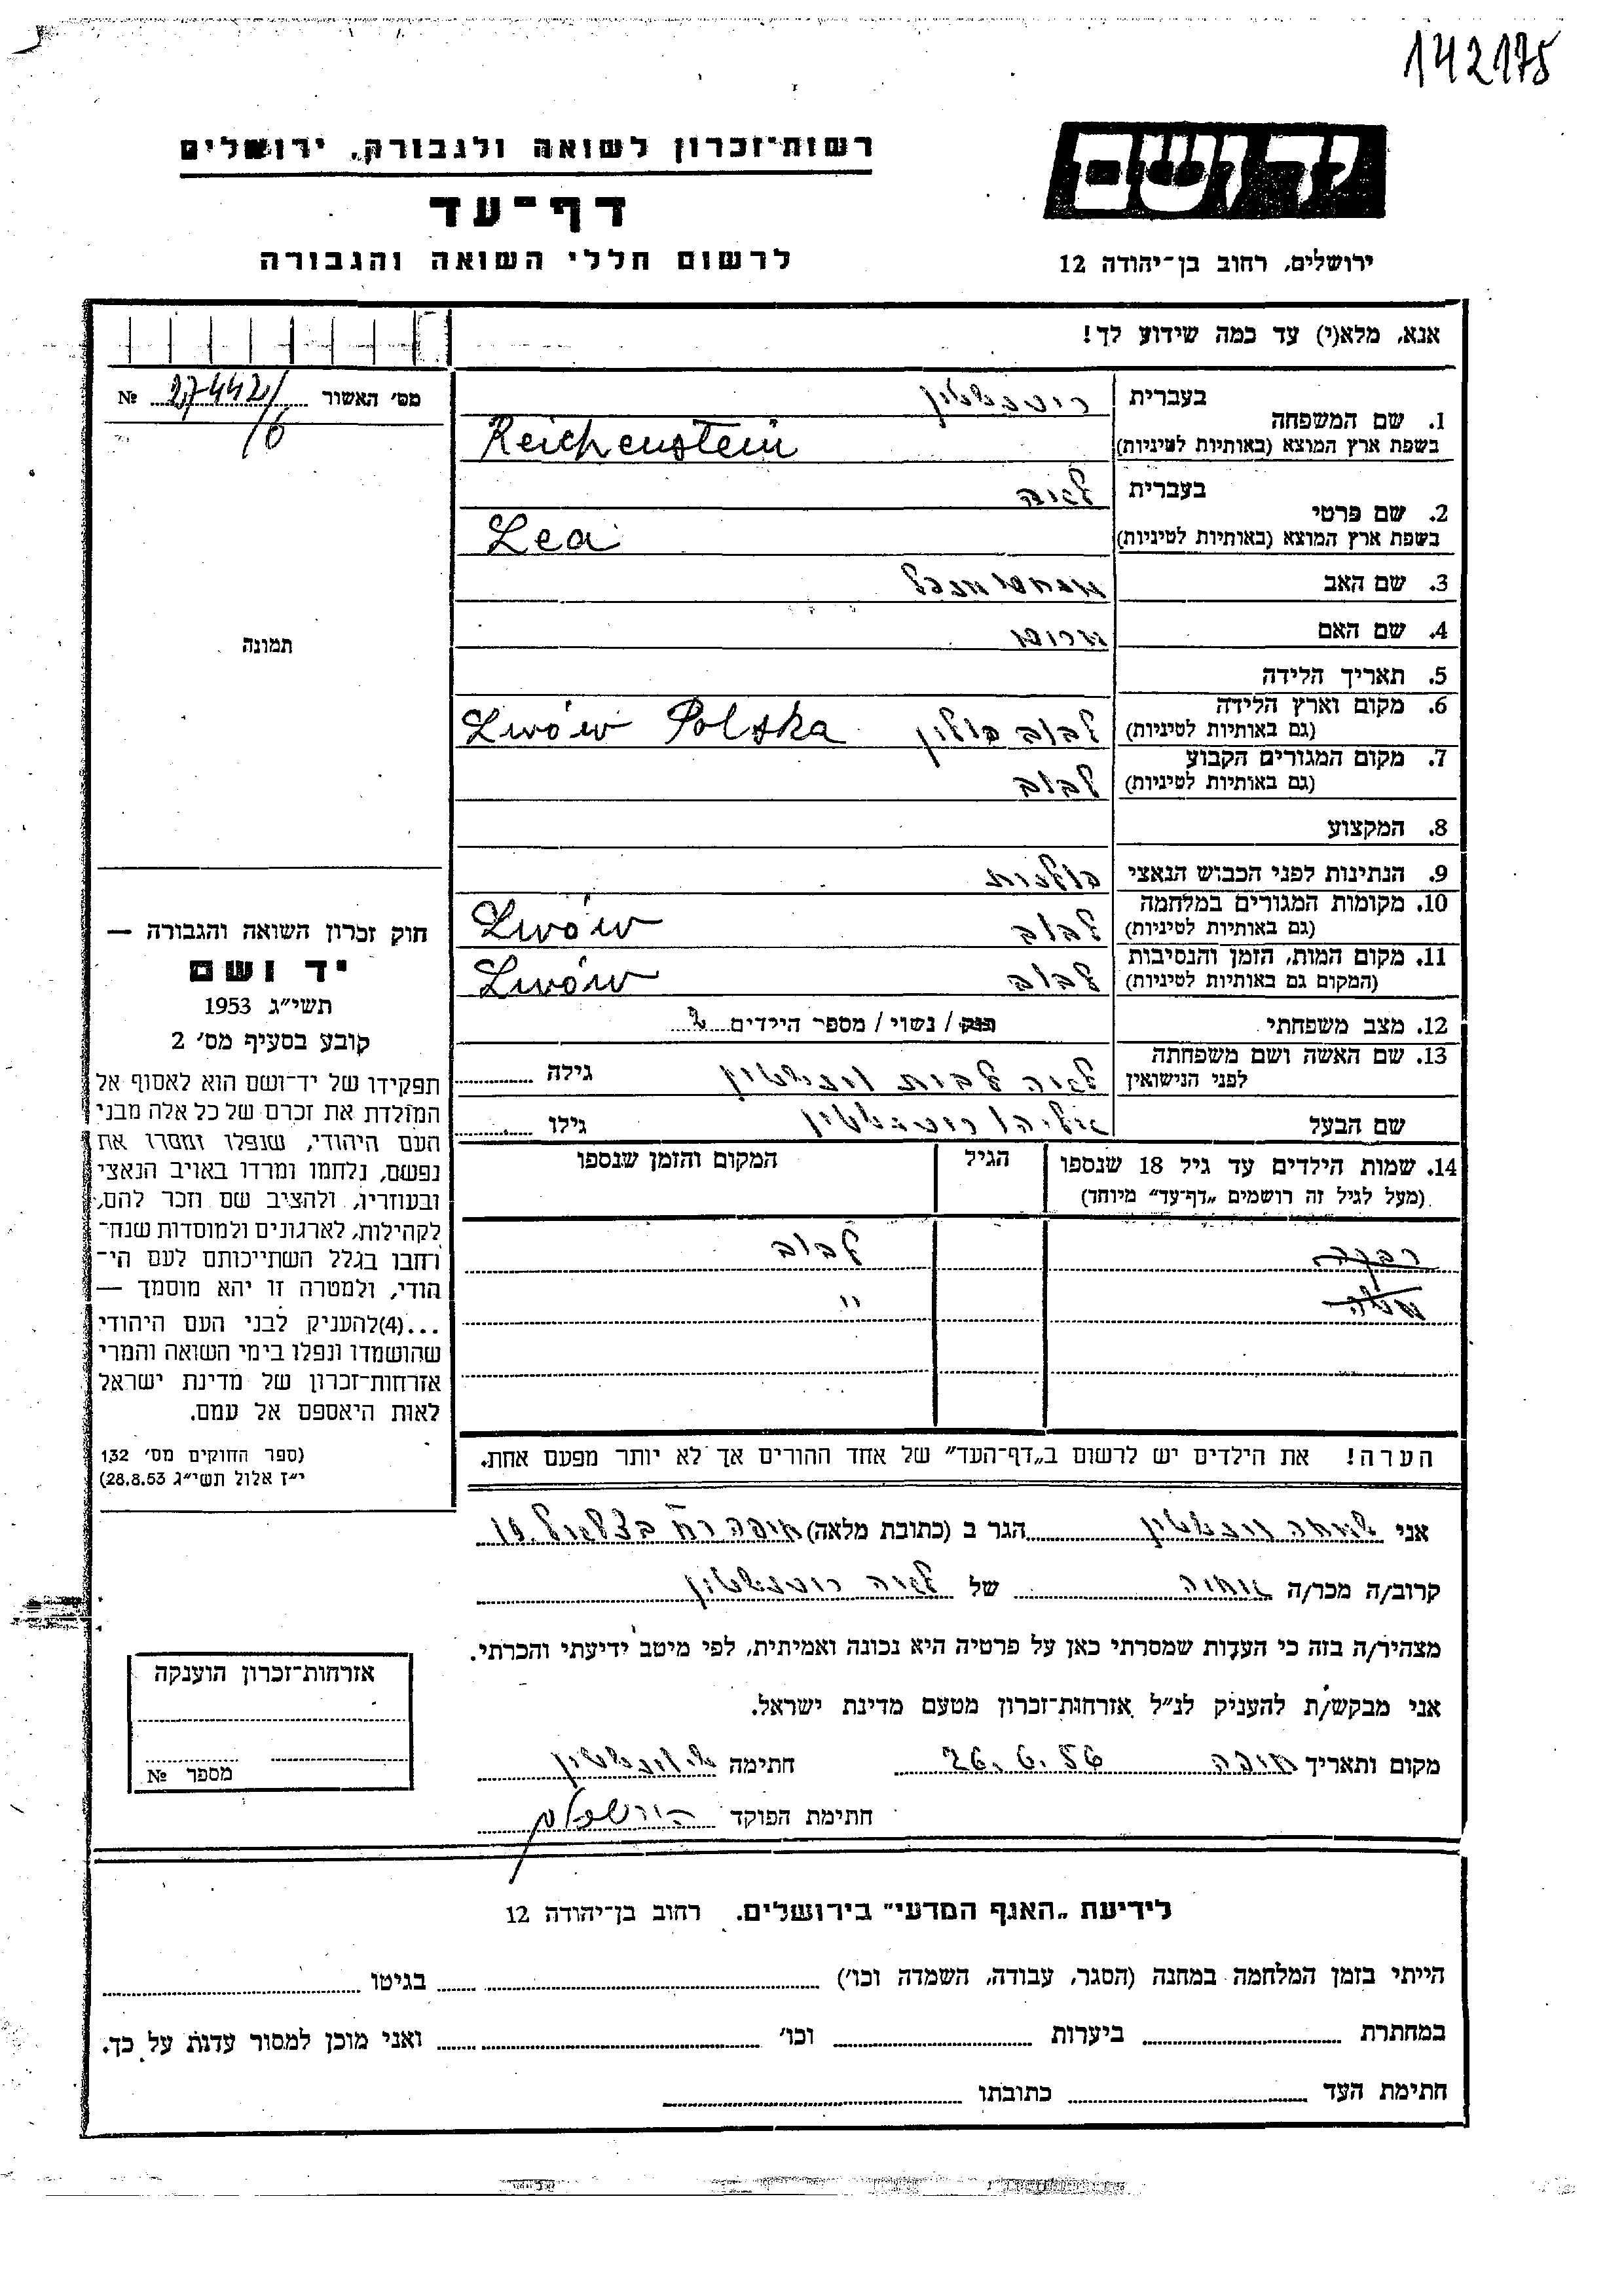 142175
רשות־זכרון לשואה ולגבורה, ירושלים
יד ושם
דף־עד
לרשום חללי השואה והגבורה
ירושלים, רחוב בן־יהודה 12
אנא, מלא(י) עד כמה שידוע לך!
מס' האשור № 27442/
6
1. שם המשפחה
בעברית
בשפת ארץ המוצא (באותיות לטיניות) Reichenstein
2. שם פרטי
בעברית לאה
בשפת ארץ המוצא (באותיות לטיניות) Lea
3. שם האב
4. שם האם
תמונה
5. תאריך הלידה
6. מקום וארץ הלידה
(גם באותיות לטיניות) לבוב פולין Lwów Polska
7. מקום המגורים הקבוע
(גם באותיות לטיניות) לבוב
8. המקצוע
9. הנתינות לפני הכבוש הנאצי פולנית
10. מקומות המגורים במלחמה
(גם באותיות לטיניות) לבוב Lwów
11. מקום המות, הזמן והנסיבות
(המקום גם באותיות לטיניות) לבוב Lwów
12. מצב משפחתי רווק / נשוי / מספר הילדים 2
13. שם האשה ושם משפחתה
לפני הנישואין לאה לבית גילה
שם הבעל אליהו גילו
14. שמות הילדים עד גיל 18 שנספו
(מעל לגיל זה רושמים „דף־עד" מיוחד)
הגיל
המקום והזמן שנספו
רבקה לבוב
משה "
הערה! את הילדים יש לרשום ב„דף־העד" של אחד ההורים אך לא יותר מפעם אחת.
חוק זכרון השואה והגבורה —
יד ושם
תשי״ג 1953
קובע בסעיף מס' 2
תפקידו של יד־ושם הוא לאסוף אל
המולדת את זכרם של כל אלה מבני
העם היהודי, שנפלו ומסרו את
נפשם, נלחמו ומרדו באויב הנאצי
ובעוזריו, ולהציב שם וזכר להם,
לקהילות, לארגונים ולמוסדות שנח־
רחבו בגלל השתייכותם לעם הי־
הודי, ולמטרה זו יהא מוסמך —
...(4)להעניק לבני העם היהודי
שהושמדו ונפלו בימי השואה והמרי
אזרחות־זכרון של מדינת ישראל
לאות היאספם אל עמם.
(ספר החוקים מס' 132
י״ז אלול תשי״ג 28.8.53)
אני הגר ב (כתובת מלאה) חיפה רח בצלאל
קרוב/ה מכר/ה של לאה
מצהיר/ה בזה כי העדות שמסרתי כאן על פרטיה היא נכונה ואמיתית, לפי מיטב ידיעתי והכרתי.
אני מבקש/ת להעניק לנ״ל אזרחות־זכרון מטעם מדינת ישראל.
מקום ותאריך חיפה 26.6.56 חתימה
חתימת הפוקד
אזרחות־זכרון הוענקה
מספר №
לידיעת „האגף המדעי" בירושלים. רחוב בן־יהודה 12
הייתי בזמן המלחמה במחנה (הסגר, עבודה, השמדה וכו') בגיטו
במחתרת ביערות וכו' ואני מוכן למסור עדות על כך.
חתימת העד כתובתו